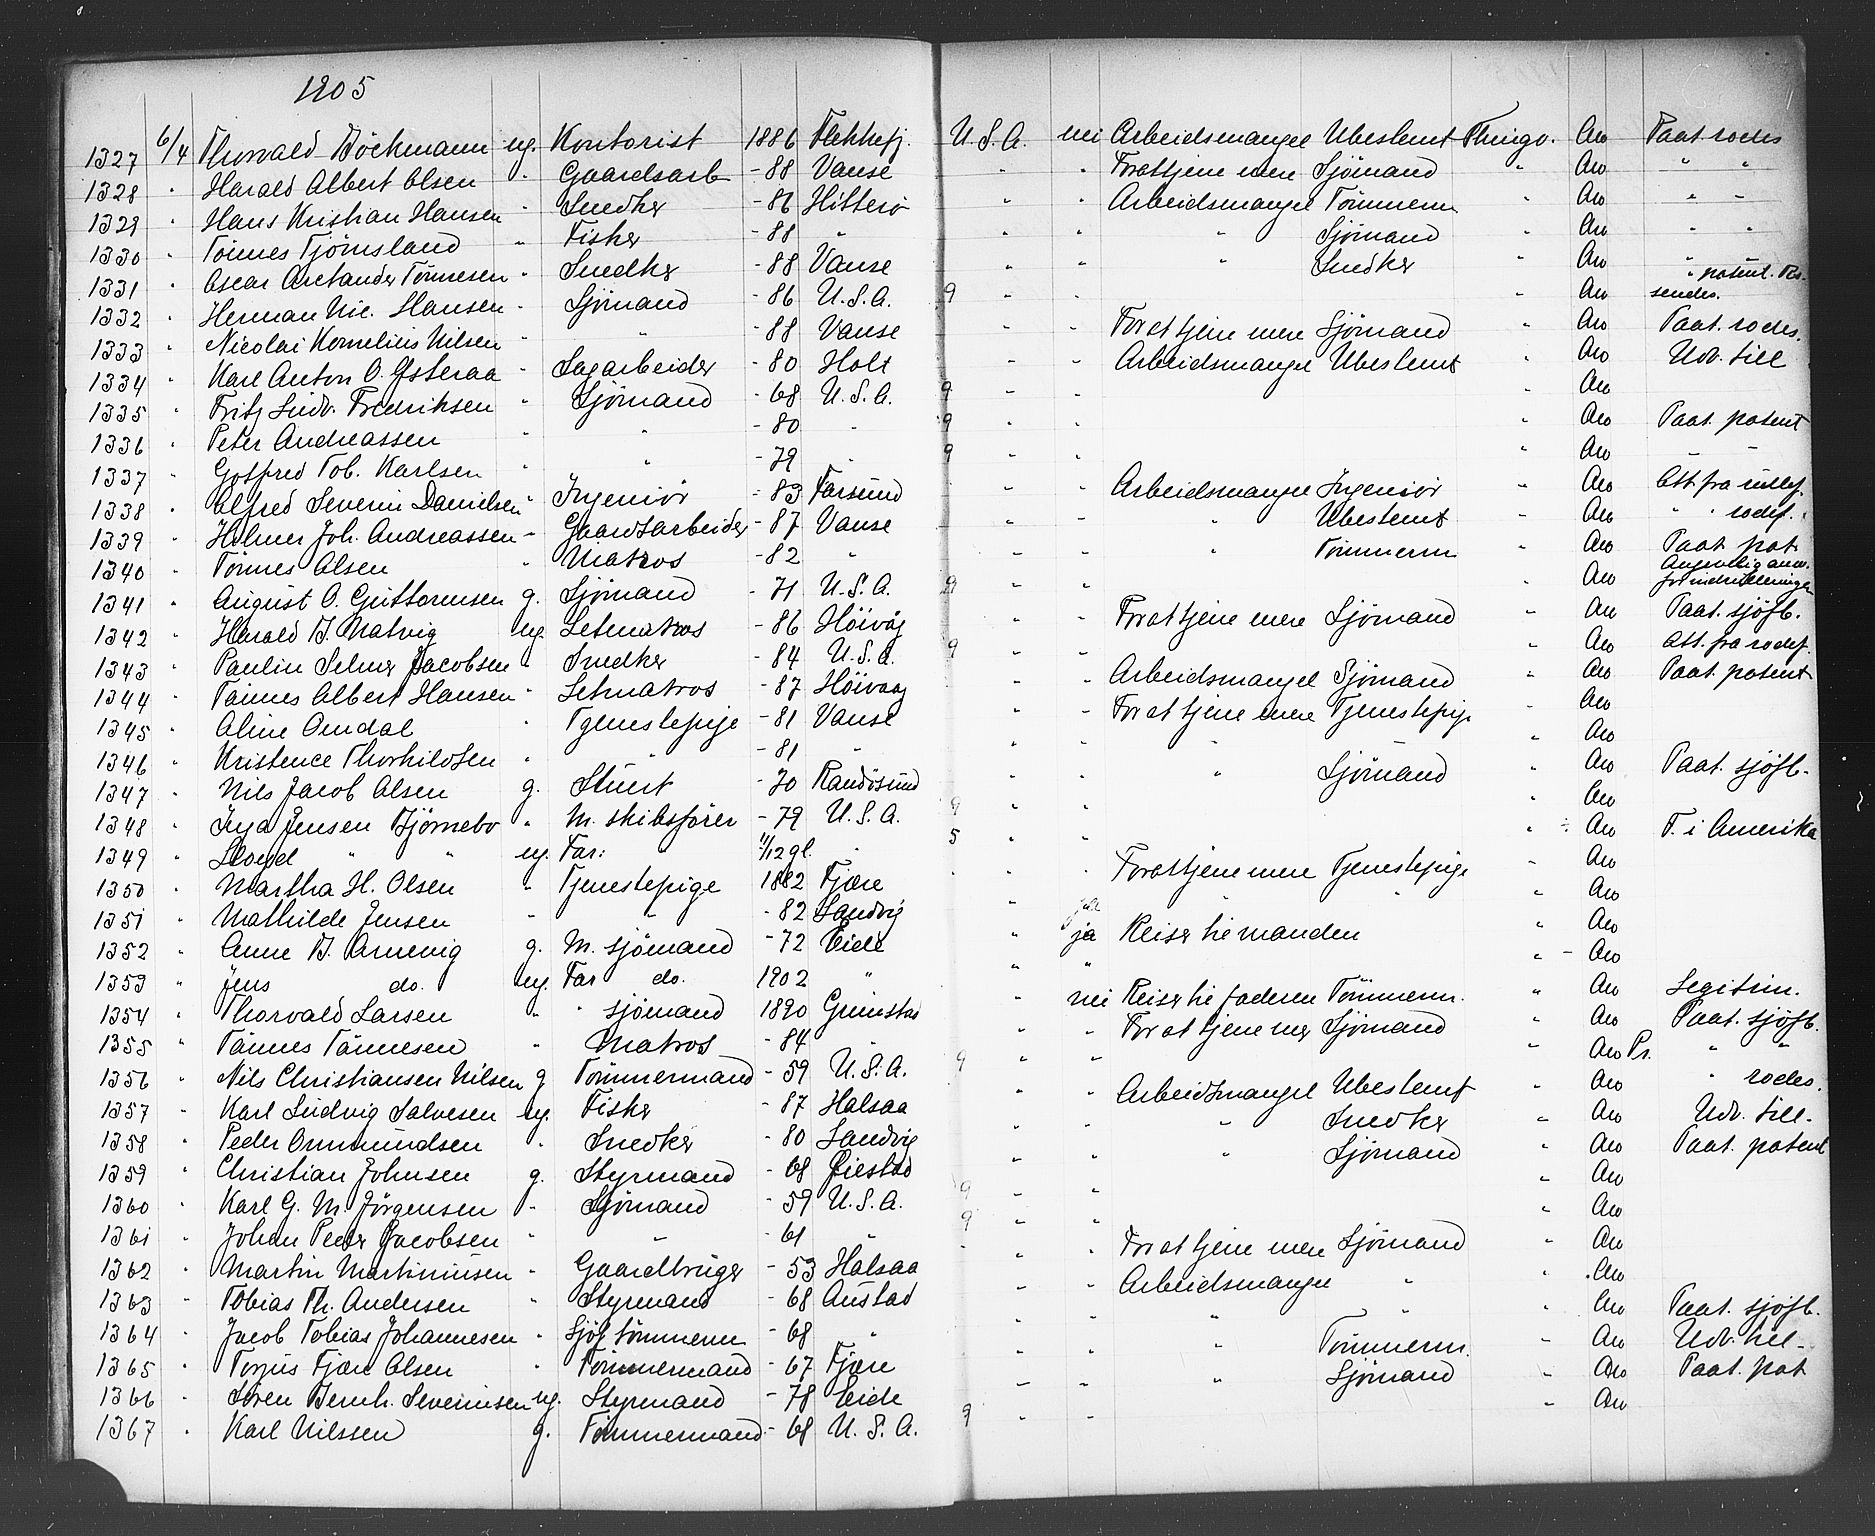 1905
1327 6/4 Thorvald Böckmann ug. Kontorist 1886 Flekkefj. U.S.A. nei Arbeidsmangel Ubestemt Thingv. Aro Paat. rodes
1328 " Harald Albert Olsen " Gaardsarb - 88 Vanse " " For at tjene mere Sjömand " Aro " "
1329 " Hans Kristian Hansen " Snedker - 86 Hitterö " " Arbeidsmangel Tömmerm " Aro " "
1330 " Tönnes Tjömsland " Fisker - 88 " " " " Sjömand " Aro " "
1331 " Oscar Aletander Tönnesen " Snedker - 88 Vanse " " " Snedker Aro " patent. Rö-
1332 " Herman Nic. Hansen " Sjömand - 86 U.S.A. 9 " " " Aro sendes.
1333 " Nicolai Kornelius Nilsen " " - 88 Vanse " " For at tjene mere Sjömand " Aro Paat. rodes.
1334 " Karl Anton O. Østeraa " Sagarbeider - 80 Holt " " Arbeidsmangel Ubestemt " Aro Udv. till
1335 " Fritz Ludv. Fredriksen " Sjömand - 68 U.S.A. 9 " " Aro
1336 " Peter Andreassen " " - 80 " 9 " " " Aro Paat. patent
1337 " Gotfred Tob. Karlsen " " - 79 " 9 " " " Aro "
1338 " Alfred Severin Danielsen " Ingeniör - 83 Farsund " " Arbeidsmangel Ingeniör " Aro Att. fra rullef.
1339 " Hilmer Joh. Andreassen " Gaardsarbeider - 87 Vanse " " " Ubestemt " Aro " " rodef.
1340 " Tönnes Olsen " Matros - 82 " " " " Tömmerm " Aro Paat. pat.
1341 " August O. Guttormsen g. Sjömand - 71 U.S.A. 9 " " Aro
1342 " Harald B. Natvig ug. Letmatros - 86 Höivåg " " For at tjene mere Sjömand " Aro Paat. sjöfb.
1343 " Paulin Selmer Jacobsen " Snedker - 84 U.S.A. 9 " " " Aro Att. fra rodef.
1344 " Tönnes Albert Hansen " Letmatros - 87 Höivaag " " Arbeidsmangel Sjömand " Aro Paat. patent
1345 " Aline Omdal " Tjenestepige - 81 Vanse " " For at tjene mere Tjenestepige " Aro
1346 " Kristence Thorkildsen " " - 81 " " " " Aro
1347 " Nils Jacob Olsen g. Stuert - 70 Randösund " " " Sjömand " Aro Paat. sjöfb.
1348 " Inga Jensen Björnebo " M. skibsförer - 79 U.S.A. 9 " " Aro
1349 " Lloyd " " ug. Far: 11/12 gl. " 5 " " " ÷ Aro F. i Amerika
1350 " Martha H. Olsen " Tjenestepige 1882 Fjære " " For at tjene mere Tjenestepige " Aro
1351 " Mathilde Jensen " " - 82 Landvig " " " " Aro
1352 " Anne B. Arnevig g. M. sjömand - 72 Eide " ja Reiser til manden " Aro
1353 " Jens do. ug. Far do. 1902 " " " " - Aro
1354 " Thorvald Larsen " " sjömand 1890 Grimstad " nei Reiser til faderen Tömmerm. " Aro Legitim.
1355 " Tönnes Tönnesen " Matros - 84 " " " For at tjene mer Sjömand " Aro Paat. sjöfb.
1356 " Nils Christiansen Nilsen g Tömmermand - 59 U.S.A. 9 " " Aro Pr. " "
1357 " Karl Ludvig Salvesen ug. Fisker - 87 Halsaa " " Arbeidsmangel Ubestemt " Aro " rodes.
1358 " Peder Ommundsen " Snedker - 80 Landvig " " " Snedker " Aro Udv. till.
1359 " Christian Johnsen g. Styrmand - 68 Øiestad " " " Sjömand " Aro Paat. patent
1360 " Karl G. M. Jörgensen " Sjömand - 59 U.S.A. 9 " " " Aro
1361 " Johan Peder Jacobsen " " - 61 " 9 " " " Aro
1362 " Martin Martiniusen " Gaardbruger - 53 Halsaa " " For at tjene mere Sjömand " Aro
1363 " Tobias Th. Andersen " Styrmand - 68 Austad " " Arbeidsmangel " " Aro
1364 " Jacob Tobias Johannesen " Sjöf tömmerm - 68 " " " " " " Aro Paat. sjöfb.
1365 " Torjus Fjære Olsen " Tömmermand - 67 Fjære " " " Tömmerm. " Aro Udv. till.
1366 " Sören Bernh. Severinsen ug. Styrmand - 78 Eide " " " Sjömand " Aro Paat. pat
1367 " Karl Nilssen g. Tömmermand - 68 U.S.A. 9 " " " Aro